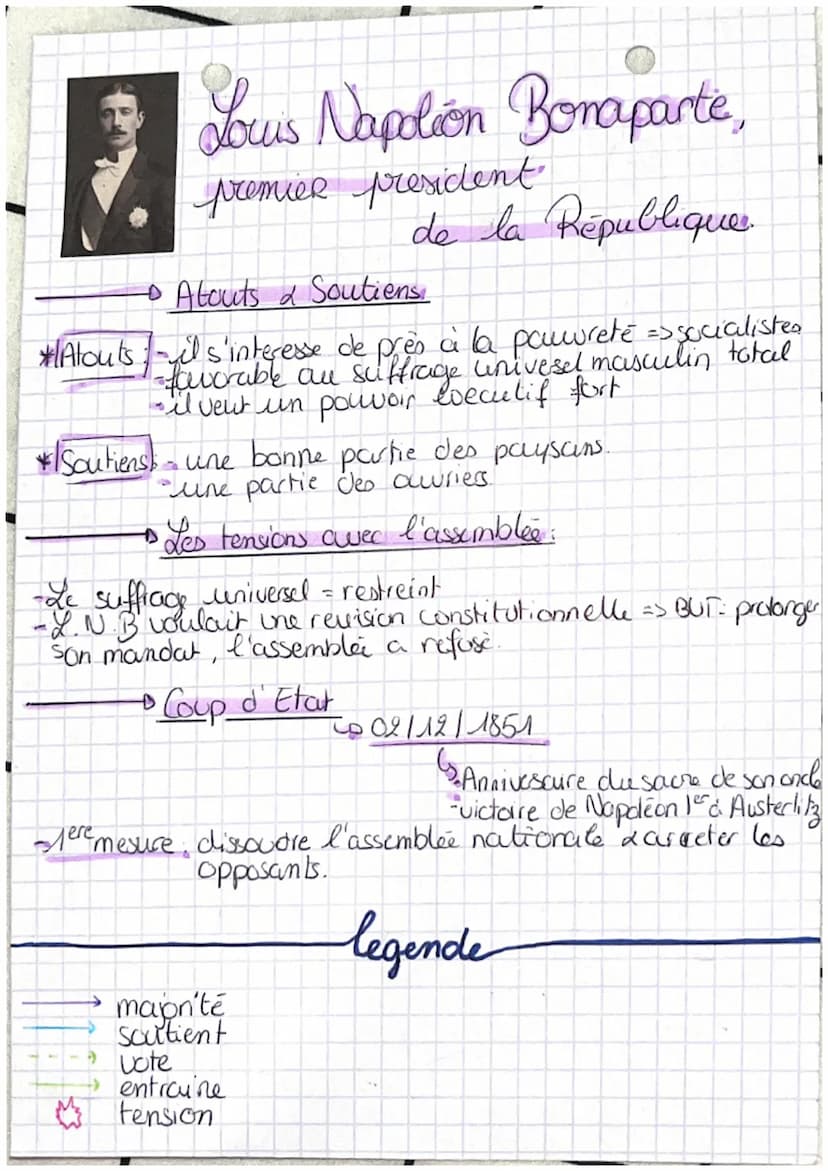 Louis Napoléon Bonaparte,
premier president
de la République.
Atouts & Soutiens
*Atouts : - il s'interesse de près à la pauvreté => socialistes
- favorable au suffrage univesel masculin total
- il veut un pouvoir executif fort
*Soutiens : - une bonne partie des paysans.
- une partie des ouvriers.
Les tensions avec l'assemblée :
- Le suffrage universel = restreint
- L.N.B voulait une revision constitutionnelle => BUT : prolonger
son mandat, l'assemblée a refusé.
Coup d'Etat
02/12/1851
- Anniversaire du sacre de son oncle
- victoire de Napoléon 1er à Austerlitz
- 1ere mesure : dissoudre l'assemblée nationale & arreter les
opposants.
legende
majorité
soutient
vote
entraine
tension